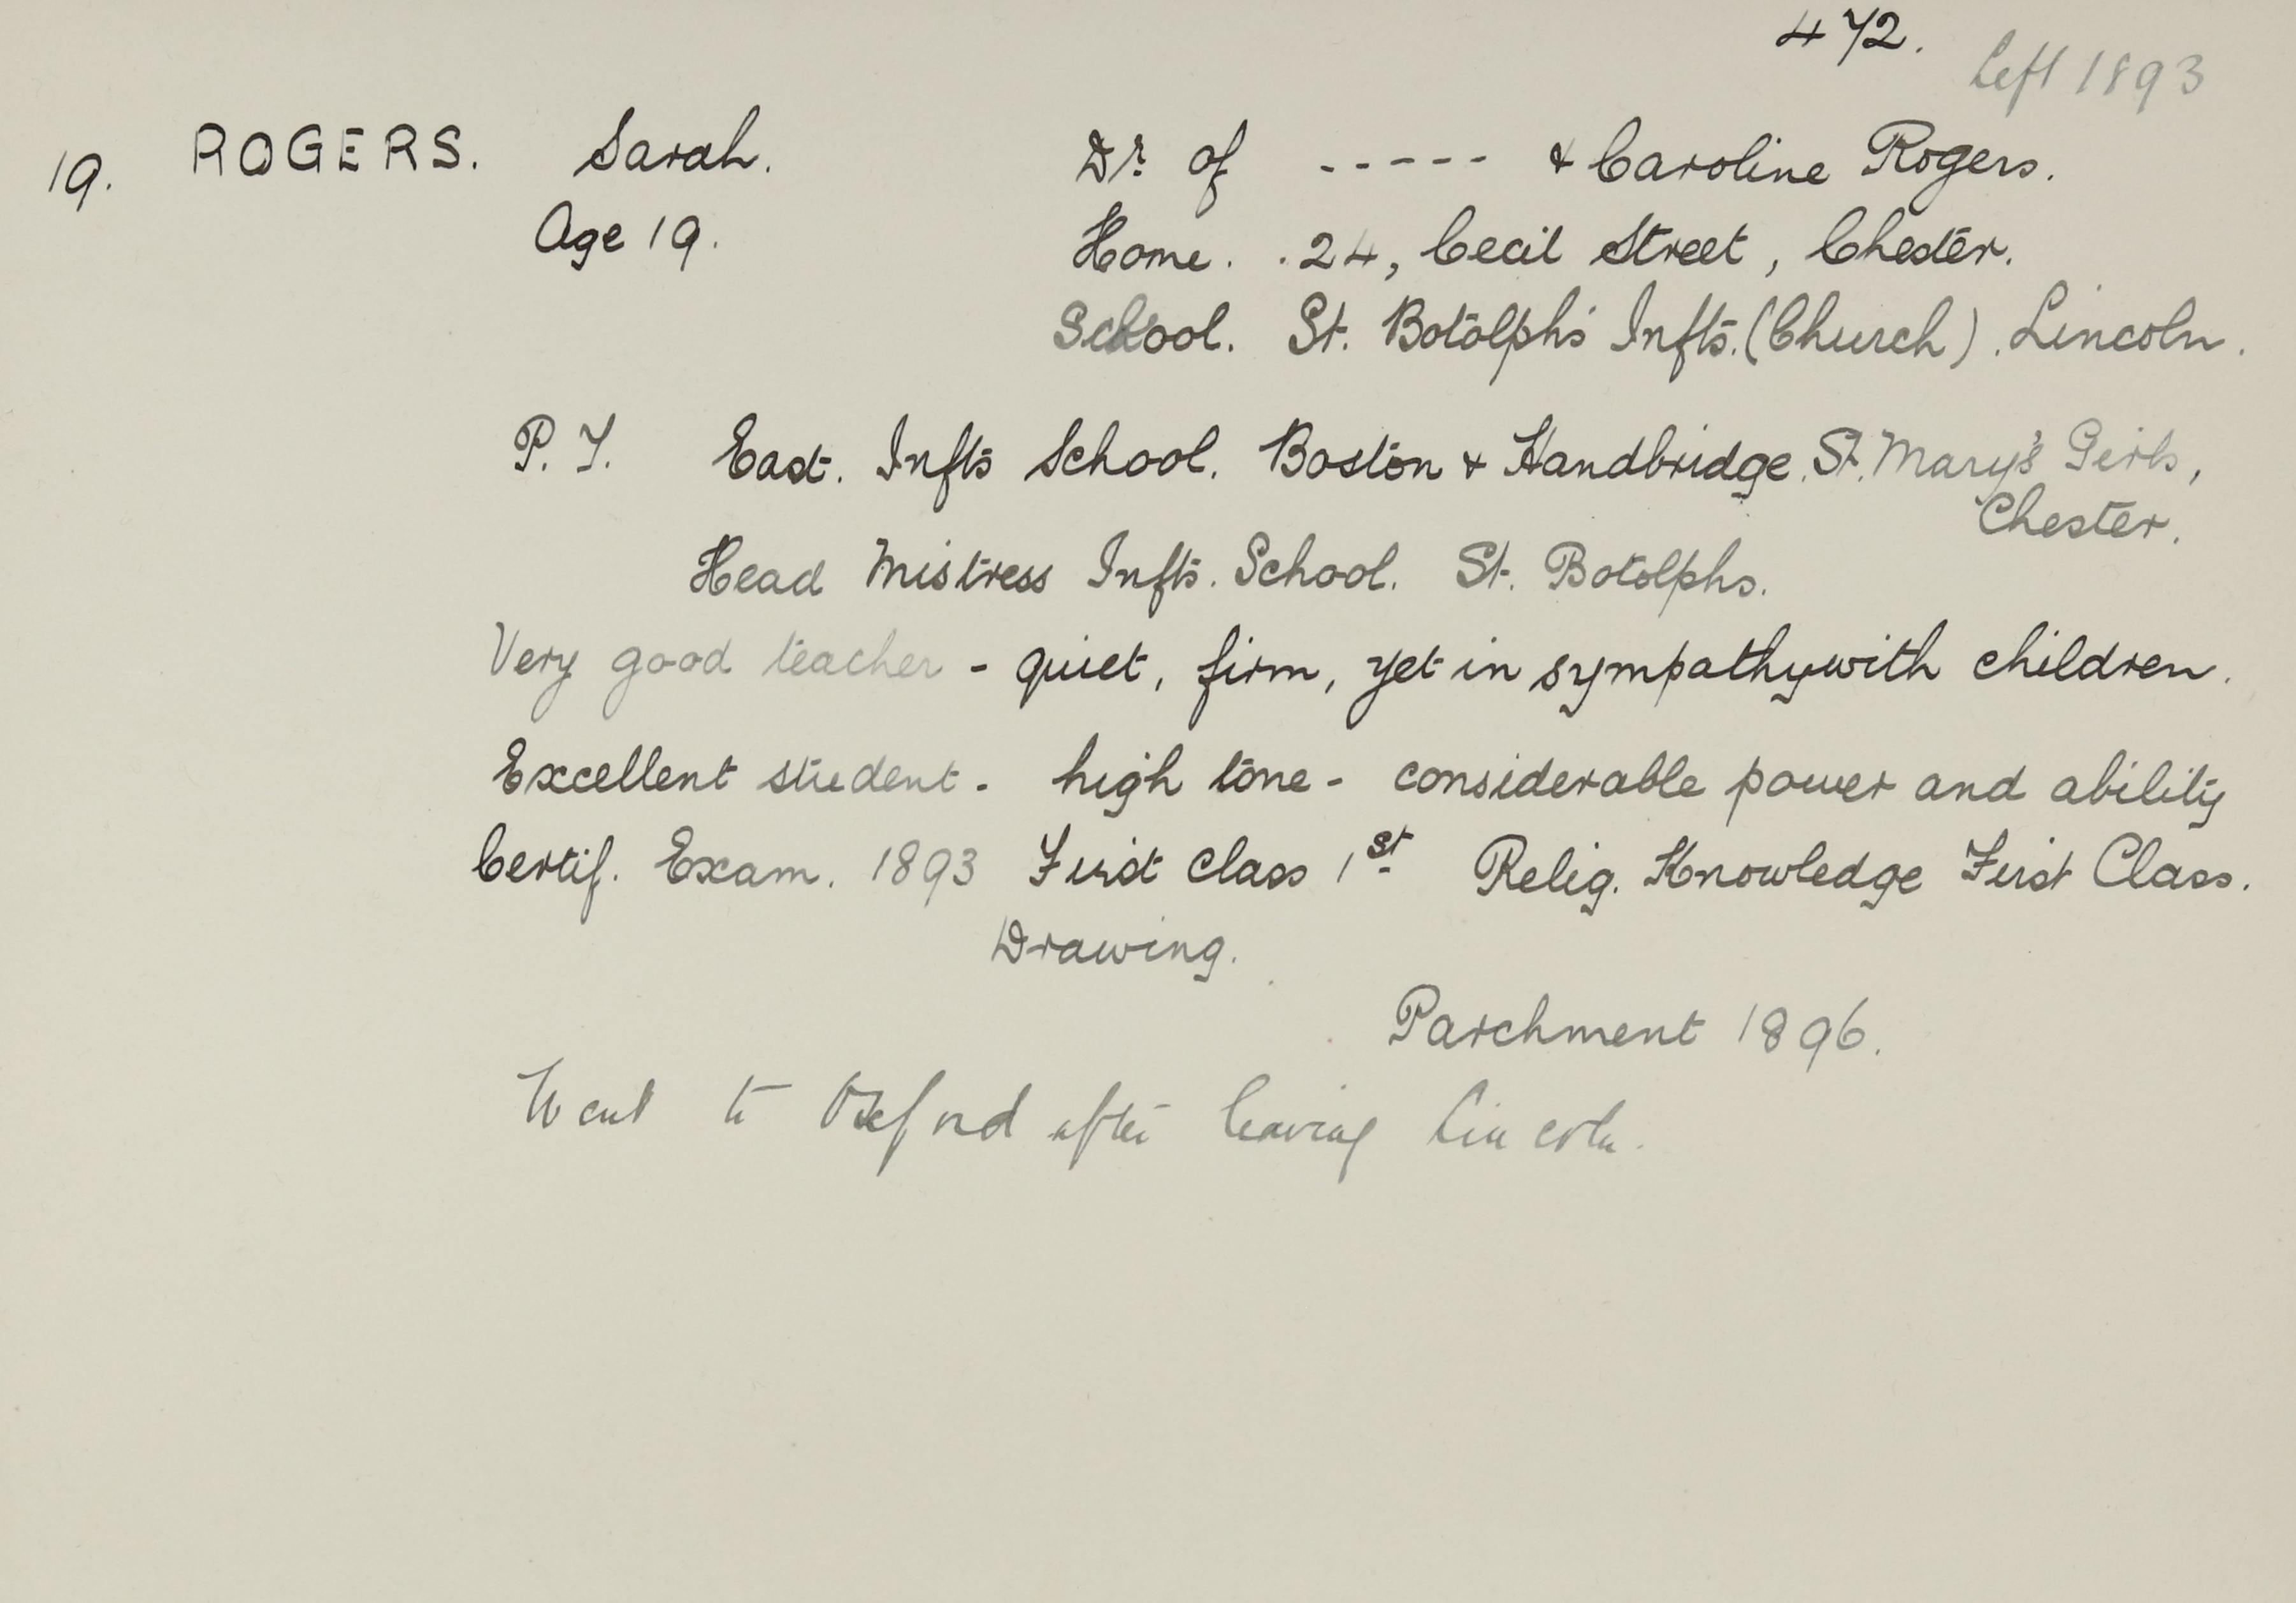 472.
Left 1893
19. ROGERS. Sarah. Dr. of ----- & Caroline Rogers.
Age 19. Home. . 24, Cecil Street, Chester.
School. St. Botolph's Infts. (Church). Lincoln.
P.T. East. Infts School. Boston & Handbridge. St. Mary's Girls,
Chester.
Head Mistress Infts. School. St. Botolphs.
Very good teacher - quiet, firm, yet in sympathy with children.
Excellent student - high tone - considerable power and ability
Certif. Exam. 1893 First class 1st Relig. Knowledge First Class.
Drawing.
Parchment 1896.
Went to Oxford after leaving Lincoln.